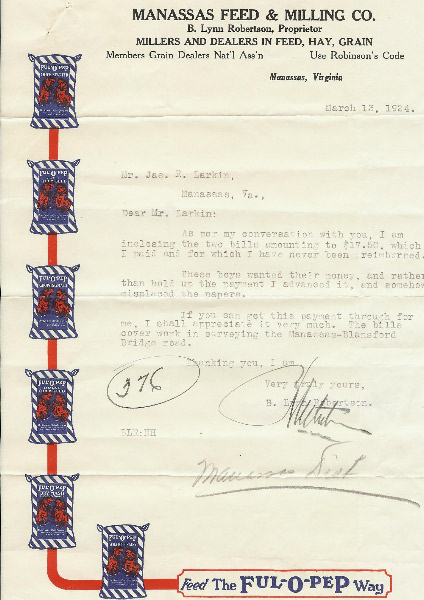 MANASSAS FEED & MILLING CO.
B. Lynn Robertson, Proprietor
MILLERS AND DEALERS IN FEED, HAY, GRAIN
Members Grain Dealers Nat'l Ass'n Use Robinson's Code
Manassas, Virginia
March 13, 1924.
Mr. Jas. R. Larkin,
Manassas, Va.,
Dear Mr. Larkin:
As per my conversation with you, I am
inclosing the two bills amounting to $17.50, which
I paid and for which I have never been reimbursed.
These boys wanted their money, and rather
than hold up the payment I advanced it, and somehow
displaced the papers.
If you can get this payment through for
me, I shall appreciate it very much. The bills
cover work in surveying the Manassas-Blansford
Bridge road.
Thanking you, I am
Very truly yours,
B. Lynn Robertson.
376
BLR:NH
Manassas Dist
FUL-O-PEP
FUL-O-PEP
FUL-O-PEP
FUL-O-PEP
FUL-O-PEP
FUL-O-PEP
Feed The FUL-O-PEP Way